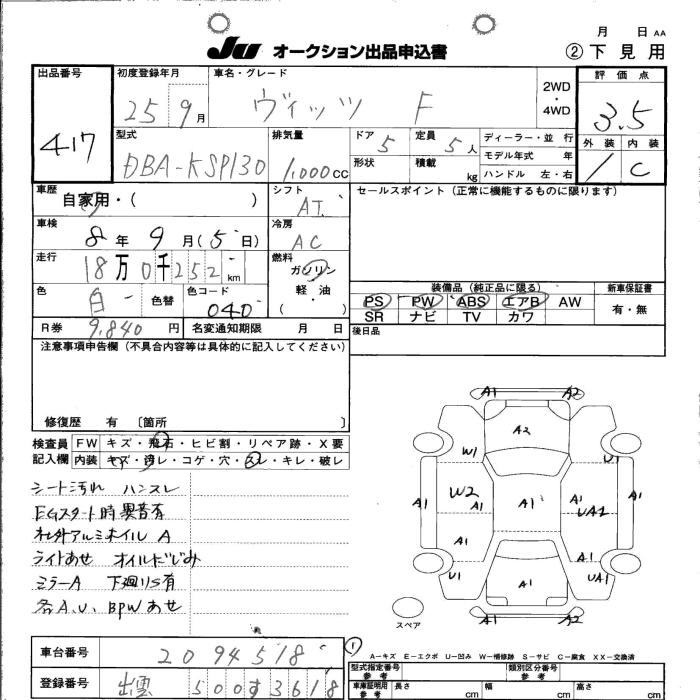 月 日 AA
JU オークション出品申込書
②下見用
出品番号
417
初度登録年月
25 9月
車名・グレード
ヴィッツ F
2WD・4WD
評価点
3.5
外装 内装
1 C
型式
DBA-KSP130
排気量
1,000cc
ドア 5
定員 5人
形状
積載 kg
ディーラー・並行
モデル年式 年
ハンドル 左・右
車歴
自家用・( )
シフト
AT
セールスポイント(正常に機能するものに限ります)
車検
8年9月(5日)
冷房
AC
走行
18万0千252km
燃料
ガソリン
軽・油
( )
色
白
色替
色コード
040
装備品(純正品に限る)
PS PW ABS エアB AW
SR ナビ TV カワ
新車保証書
有・無
R券 9,840円
名変通知期限 月 日
後日品
注意事項申告欄(不具合内容等は具体的に記入してください)
修復歴 有 〔箇所 〕
検査員記入欄
FW キズ・飛石・ヒビ割・リペア跡・X要
内装 キズ・汚レ・コゲ・穴・スレ・キレ・破レ
シート汚れ ハンスレ
EGスタート時異音有
社外アルミホイル A
ライトあせ オイルにじみ
ミラーA 下廻りS有
各A.U. BPWあせ
A1 A2
A2
W1 U1
A1 W2 A1 A1 UA1 A1
A1
U1 A1 UA1
A1 A2
スペア
A-キズ E-エクボ U-凹み W-補修跡 S-サビ C-腐食 XX-交換済
車台番号
2094518
登録番号
出雲 500す3618
型式指定番号
参考
類別区分番号
参考
車庫証明用
参考
長さ cm
幅 cm
高さ cm